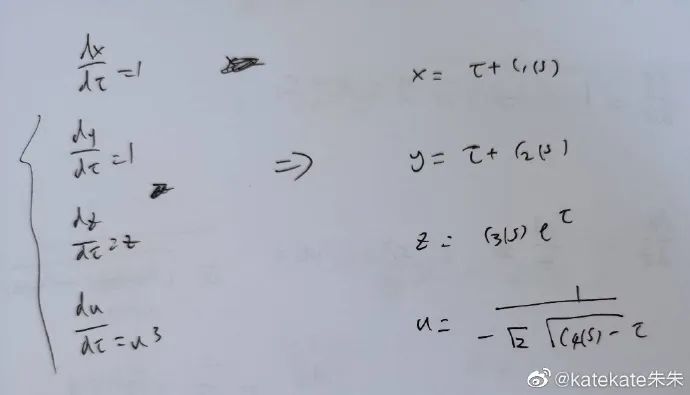 dx/dτ = 1
x = τ + C₁(s)
dy/dτ = 1 ⇒ y = τ + C₂(s)
dz/dτ = z
z = C₃(s) e^τ
du/dτ = u³
u = 1/(-√2 √(C₄(s) - τ))
@katekate朱朱